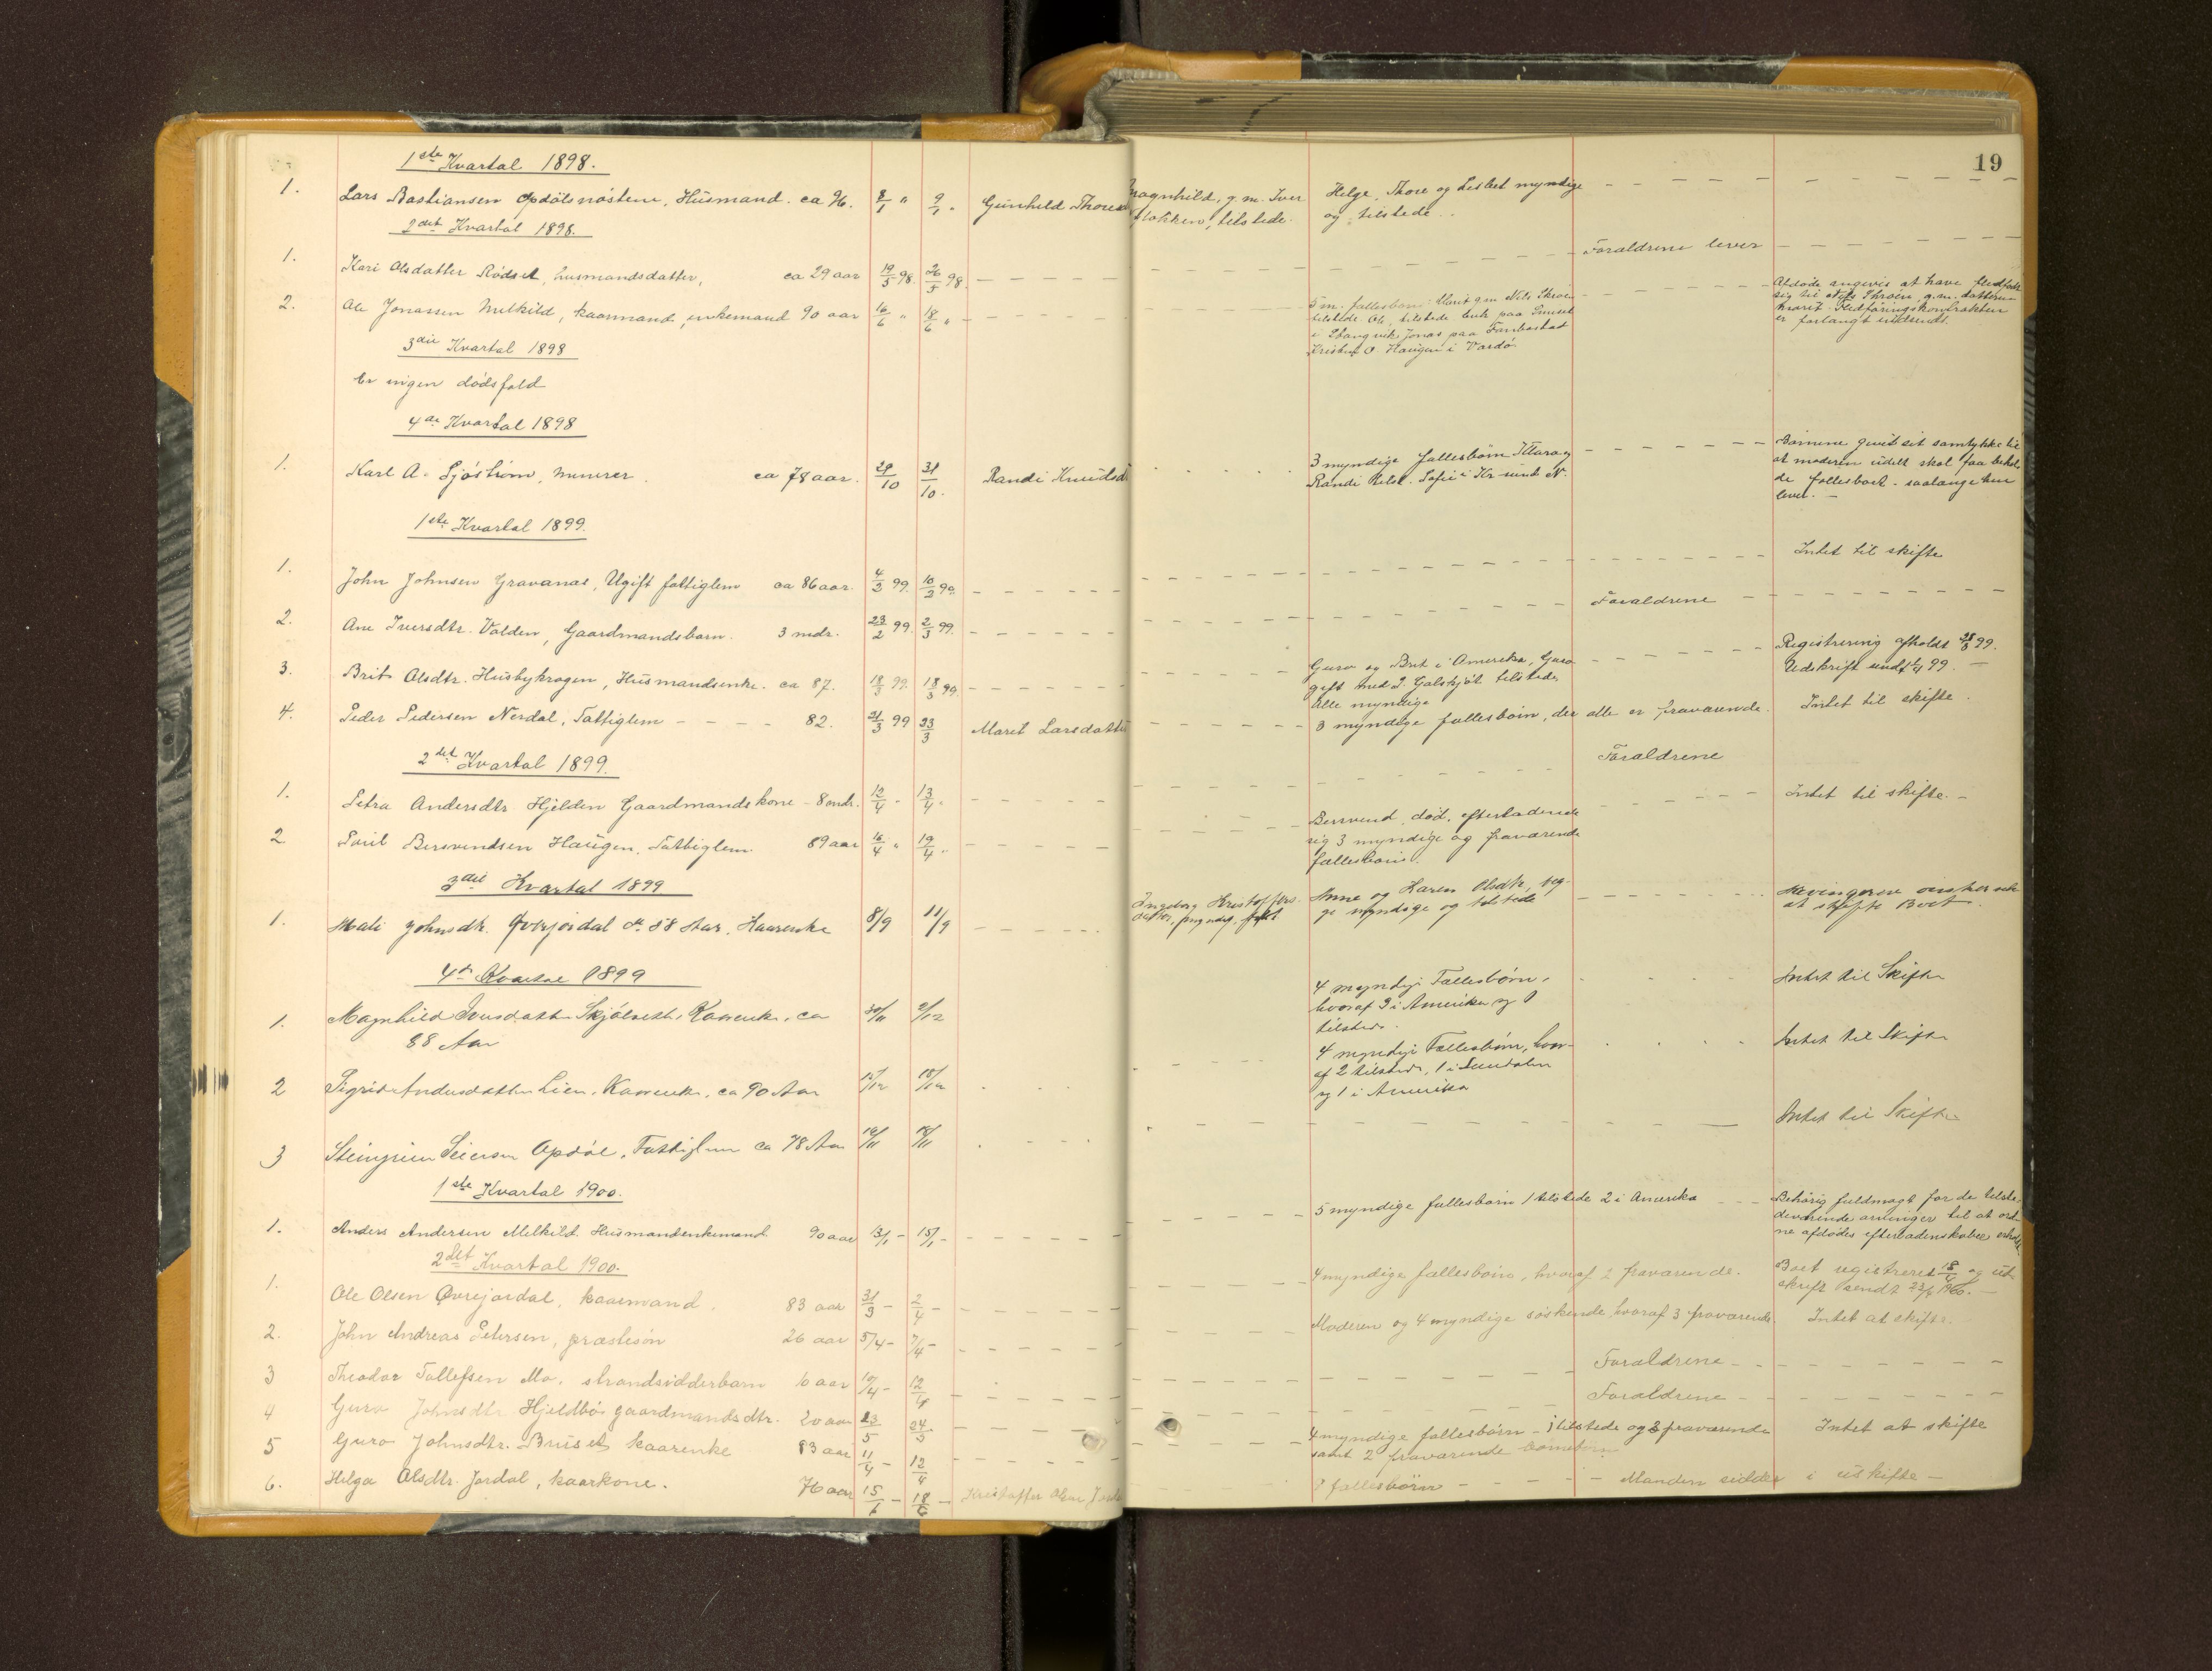 19
1ste Kvartal 1898.
1. Lars Bastiansen Opdölsnöstene, Husmand. ca 76. 8/1 " 9/1 " Gunhild Thores
Magnhild, g. m. Iver
Flokken, tilstede.
Helge, Thore og Lisbet myndige
og tilstede.
2det Kvartal 1898.
1. Kari Olsdatter Rödset, husmandsdatter, ca 29 aar 19/5 98. 26/5 98.
Forældrene lever
2. Ole Jonassen Melkild, kaarmand, enkemand 90 aar 16/6 " 18/6 "
5 m. fællesbörn: Marit g. m. Nils Throen
tilstede Ole, tilstede Enk paa
i Stangvik Jonas paa
Kristen O. Haugen i Vardö
Afdöde angives at have ledfört
sig til Nils Throen, g. m. datteren
Marit. Kontrakten
er forlangt indsendt.
3die Kvartal 1898
Er ingen dödsfald
4de Kvartal 1898
1. Karl A. Sjöström, murer. ca 78 aar. 29/10 31/10. Randi Knudsd
3 myndige fællesbörn Klara og
Randi tilst. Sofie i Kr.sund N.
Börnene givet sit samtykke til
at moderen udelt skal faa behol
de fællesboet saalænge hun
lever. —
1ste Kvartal 1899.
1. John Johnsen Gravanæs, Ugift fattiglem ca 86 aar. 4/2 99. 10/2 99.
Intet til skifte
2. Ane Iversdtr. Valden, Gaardmandsbarn. 3 mdr. 23/2 99. 2/3 99.
Forældrene
3. Brit Olsdtr. Husbykragen, Husmandsenke. ca 87. 18/3 99. 18/3 99.
Guro og Brit i Amerika, Guro
gift med I. Galskjöt tilstede
Alle myndige
Registrering afholdt 28/3 99.
Udskrift sendt 4/4 99. —
4. Peder Pedersen Nerdal, Fattiglem 82. 21/3 99 23/3 Marit Larsdatte
3 myndige fællesbörn, der alle er fraværende.
Intet til skifte.
2det Kvartal 1899.
1. Petra Andersdtr Hjelden Gaardmandskone 8 mdr. 12/4 - 13/4 -
Forældrene
Intet til skifte. —
2 Poul Bersvendsen Haugen, Fattiglem 89 aar 16/4 " 19/4 "
Bersvend, död, efterladende
sig 3 myndige og fraværende
fællesbörn.
3die Kvartal 1899
1. Mali Johnsdtr. Øvrejordal 58 Aar, Kaarenke 8/9 11/9
Ingeborg Kristoffers
datter, myndig,
Anne og Karen Olsdtr, beg-
ge myndige og tilstede
Arvingerne önsker selv
at skifte Boet.
4de Kvartal 1899
1. Magnhild Iversdatter Skjölseth, Kaarenke, ca
88 Aar
30/11 2/12
4 myndige Fællesbörn,
hvoraf 3 i Amerika og 1
tilstede.
Intet til Skifte
2 Sigrid Andersdatter Lien, Kaarenke, ca 90 Aar 15/12 18/12
4 myndige Fællesbörn, hvor-
af 2 tilstede, 1 i Sundalen
og 1 i Amerika
Intet til Skifte
3 Steingrim Opdöl, Fattiglem ca 78 Aar 18/11
Intet til Skifte
1ste Kvartal 1900.
1. Anders Andersen Melkild. Husmandenkemand 90 aar 13/1 - 15/1 -
5 myndige fællesbörn 1 tilstede 2 i Amerika
Behörig fuldmagt for de tilste-
deværende arvinger til at ord-
ne afdödes efterladenskaber
2det Kvartal 1900.
1. Ole Olsen Øvrejordal, kaarmand. 83 aar 31/3 - 2/4 -
4 myndige fællesbörn, hvoraf 2 fraværende.
Boet registreret 18/4 og ut-
skrift sendt 23/4 1900. —
2. John Andreas Petersen, præstesön 26 aar 5/4 - 7/4 -
Moderen og 4 myndige söskende, hvoraf 3 fraværende
Intet at skifte.
3 Theodor Tollefsen Mo, strandsidderbarn 10 aar 10/4 - 12/4
Forældrene
4 Guro Johnsdtr. Hjeldbö gaardmandsdtr. 20 aar 23/5 24/5
Forældrene
5 Guro Johnsdtr. Bruset kaarenke 83 aar 11/4 - 12/4
4 myndige fællesbörn - 1 tilstede og 3 fraværende
samt 2 fraværende
Intet at skifte
6. Helga Olsdtr. Jordal, kaarkone. 76 aar 15/6 - 18/6 - Kristoffer Olsen
fællesbörn — Manden sidder i uskifte —